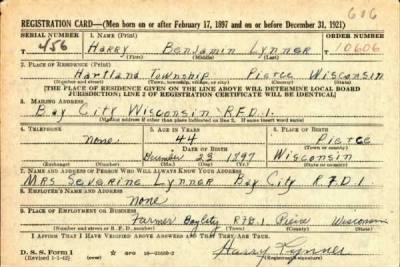 616
REGISTRATION CARD—(Men born on or after February 17, 1897 and on or before December 31, 1921)
SERIAL NUMBER 1. NAME (Print) ORDER NUMBER
T 456 Harry Benjamin Lynner 10606
(First) (Middle) (Last)
2. PLACE OF RESIDENCE (Print)
Hartland Township Pierce Wisconsin
(Number and street) (Town, township, village, or city) (County) (State)
[THE PLACE OF RESIDENCE GIVEN ON THE LINE ABOVE WILL DETERMINE LOCAL BOARD
JURISDICTION; LINE 2 OF REGISTRATION CERTIFICATE WILL BE IDENTICAL]
3. MAILING ADDRESS
Bay City Wisconsin R.F.D. 1.
[Mailing address if other than place indicated on line 2. If same insert word same]
4. TELEPHONE 5. AGE IN YEARS 6. PLACE OF BIRTH
None 44 Pierce
DATE OF BIRTH (Town or county)
December 23 1897 Wisconsin
(Exchange) (Number) (Mo.) (Day) (Yr.) (State or country)
7. NAME AND ADDRESS OF PERSON WHO WILL ALWAYS KNOW YOUR ADDRESS
Mrs Severine Lynner Bay City R.F.D. 1
8. EMPLOYER'S NAME AND ADDRESS
None
9. PLACE OF EMPLOYMENT OR BUSINESS
Farmer Bay City R.F.D. 1 Pierce Wisconsin
(Number and street or R. F. D. number) (Town) (County) (State)
I AFFIRM THAT I HAVE VERIFIED ABOVE ANSWERS AND THAT THEY ARE TRUE.
D. S. S. Form 1
(Revised 1-1-42) (over) Harry Lynner
(Registrant's signature)